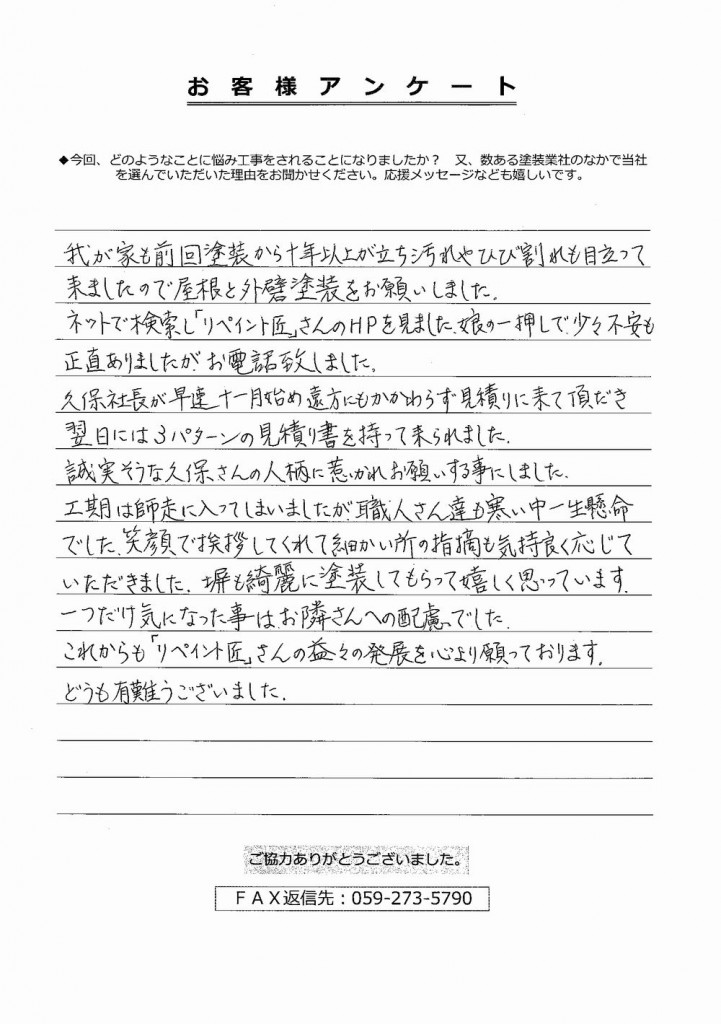 お客様アンケート
◆今回、どのようなことに悩み工事をされることになりましたか？　又、数ある塗装業社のなかで当社
を選んでいただいた理由をお聞かせください。応援メッセージなども嬉しいです。
我が家も前回塗装から十年以上が立ち汚れやひび割れも目立って
来ましたので屋根と外壁塗装をお願いしました.
ネットで検索し「リペイント匠」さんのHPを見ました.娘の一押しで少々不安も
正直ありましたが、お電話致しました.
久保社長が早速十一月始め遠方にもかかわらず見積りに来て頂だき
翌日には3パターンの見積り書を持って来られました.
誠実そうな久保さんの人柄に惹かれお願いする事にしました.
工期は師走に入ってしまいましたが職人さん達も寒い中一生懸命
でした.笑顔で挨拶してくれて細かい所の指摘も気持良く応じて
いただきました.塀も綺麗に塗装してもらって嬉しく思っています.
一つだけ気になった事はお隣さんへの配慮でした.
これからも「リペイント匠」さんの益々の発展を心より願っております.
どうも有難うございました.
ご協力ありがとうございました。
ＦＡＸ返信先：059-273-5790